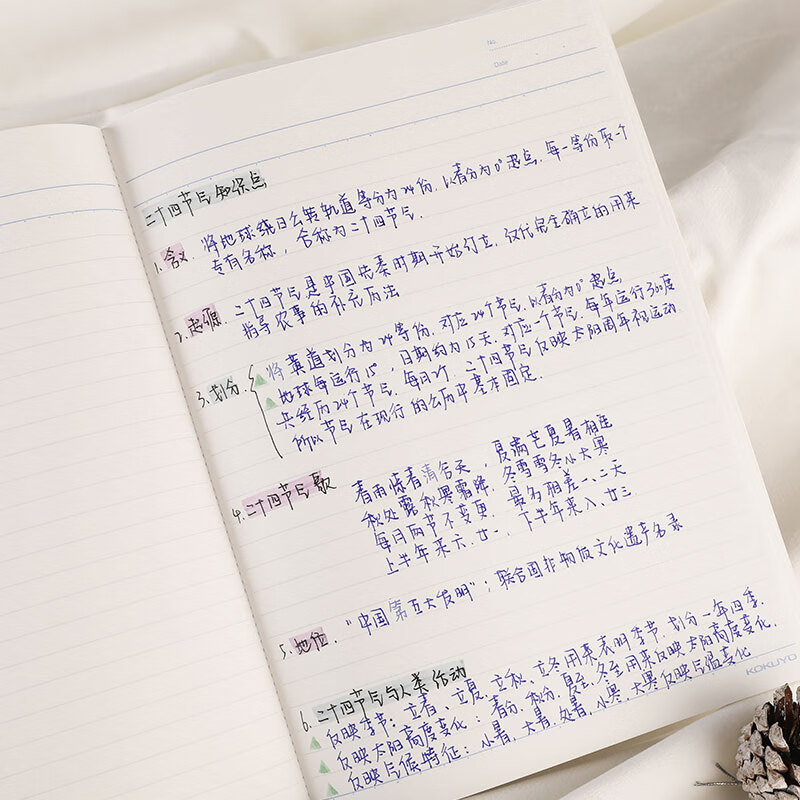 No.
Date
二十四节气知识点
1. 含义 将地球绕日公转轨道等分为24份，以春分为0°起点，每一等份取一个
专有名称，合称为二十四节气.
2. 起源. 二十四节气是中国先秦时期开始订立、汉代完全确立的用来
指导农事的补充历法
3. 划分. 将黄道划分为24等份，对应24个节气，以春分为0°起点，
地球每运行15°，日期约为15天，对应一个节气，每年运行360度
共经历24个节气，每月2个. 二十四节气反映太阳周年视运动
所以节气在现行的公历中基本固定.
4. 二十四节气歌 春雨惊春清谷天，夏满芒夏暑相连
秋处露秋寒霜降，冬雪雪冬小大寒
每月两节不变更，最多相差一、二天
上半年来六、廿一，下半年来八、廿三
5. 地位. "中国第五大发明"；联合国非物质文化遗产名录
6. 二十四节气与人类活动
反映季节：立春、立夏、立秋、立冬用来表明季节，划分一年四季.
反映太阳高度变化：春分、秋分、夏至、冬至用来反映太阳高度变化.
反映气候特征：小暑、大暑、处暑、小寒、大寒反映气温变化
KOKUYO